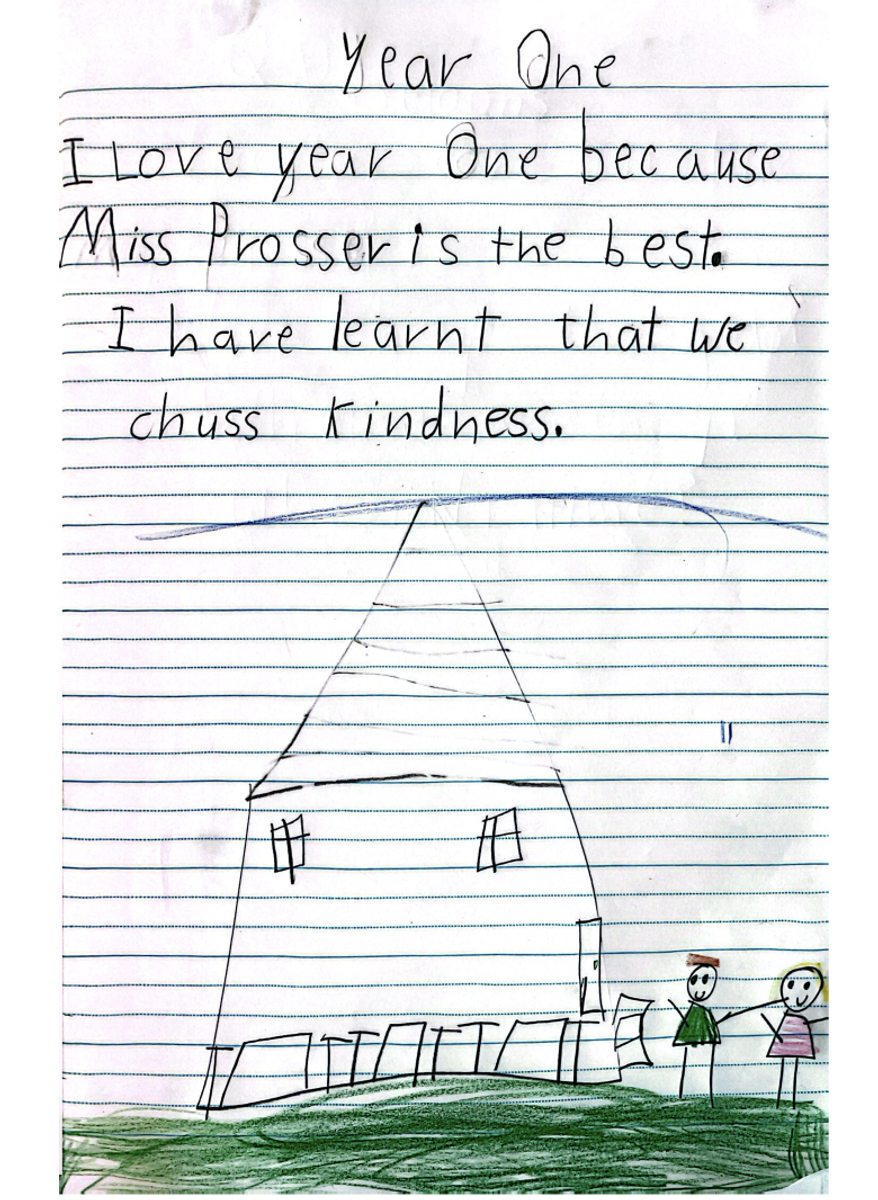 Year One
I Love year One because
Miss Prosser is the best.
I have learnt that we
chuss kindness.